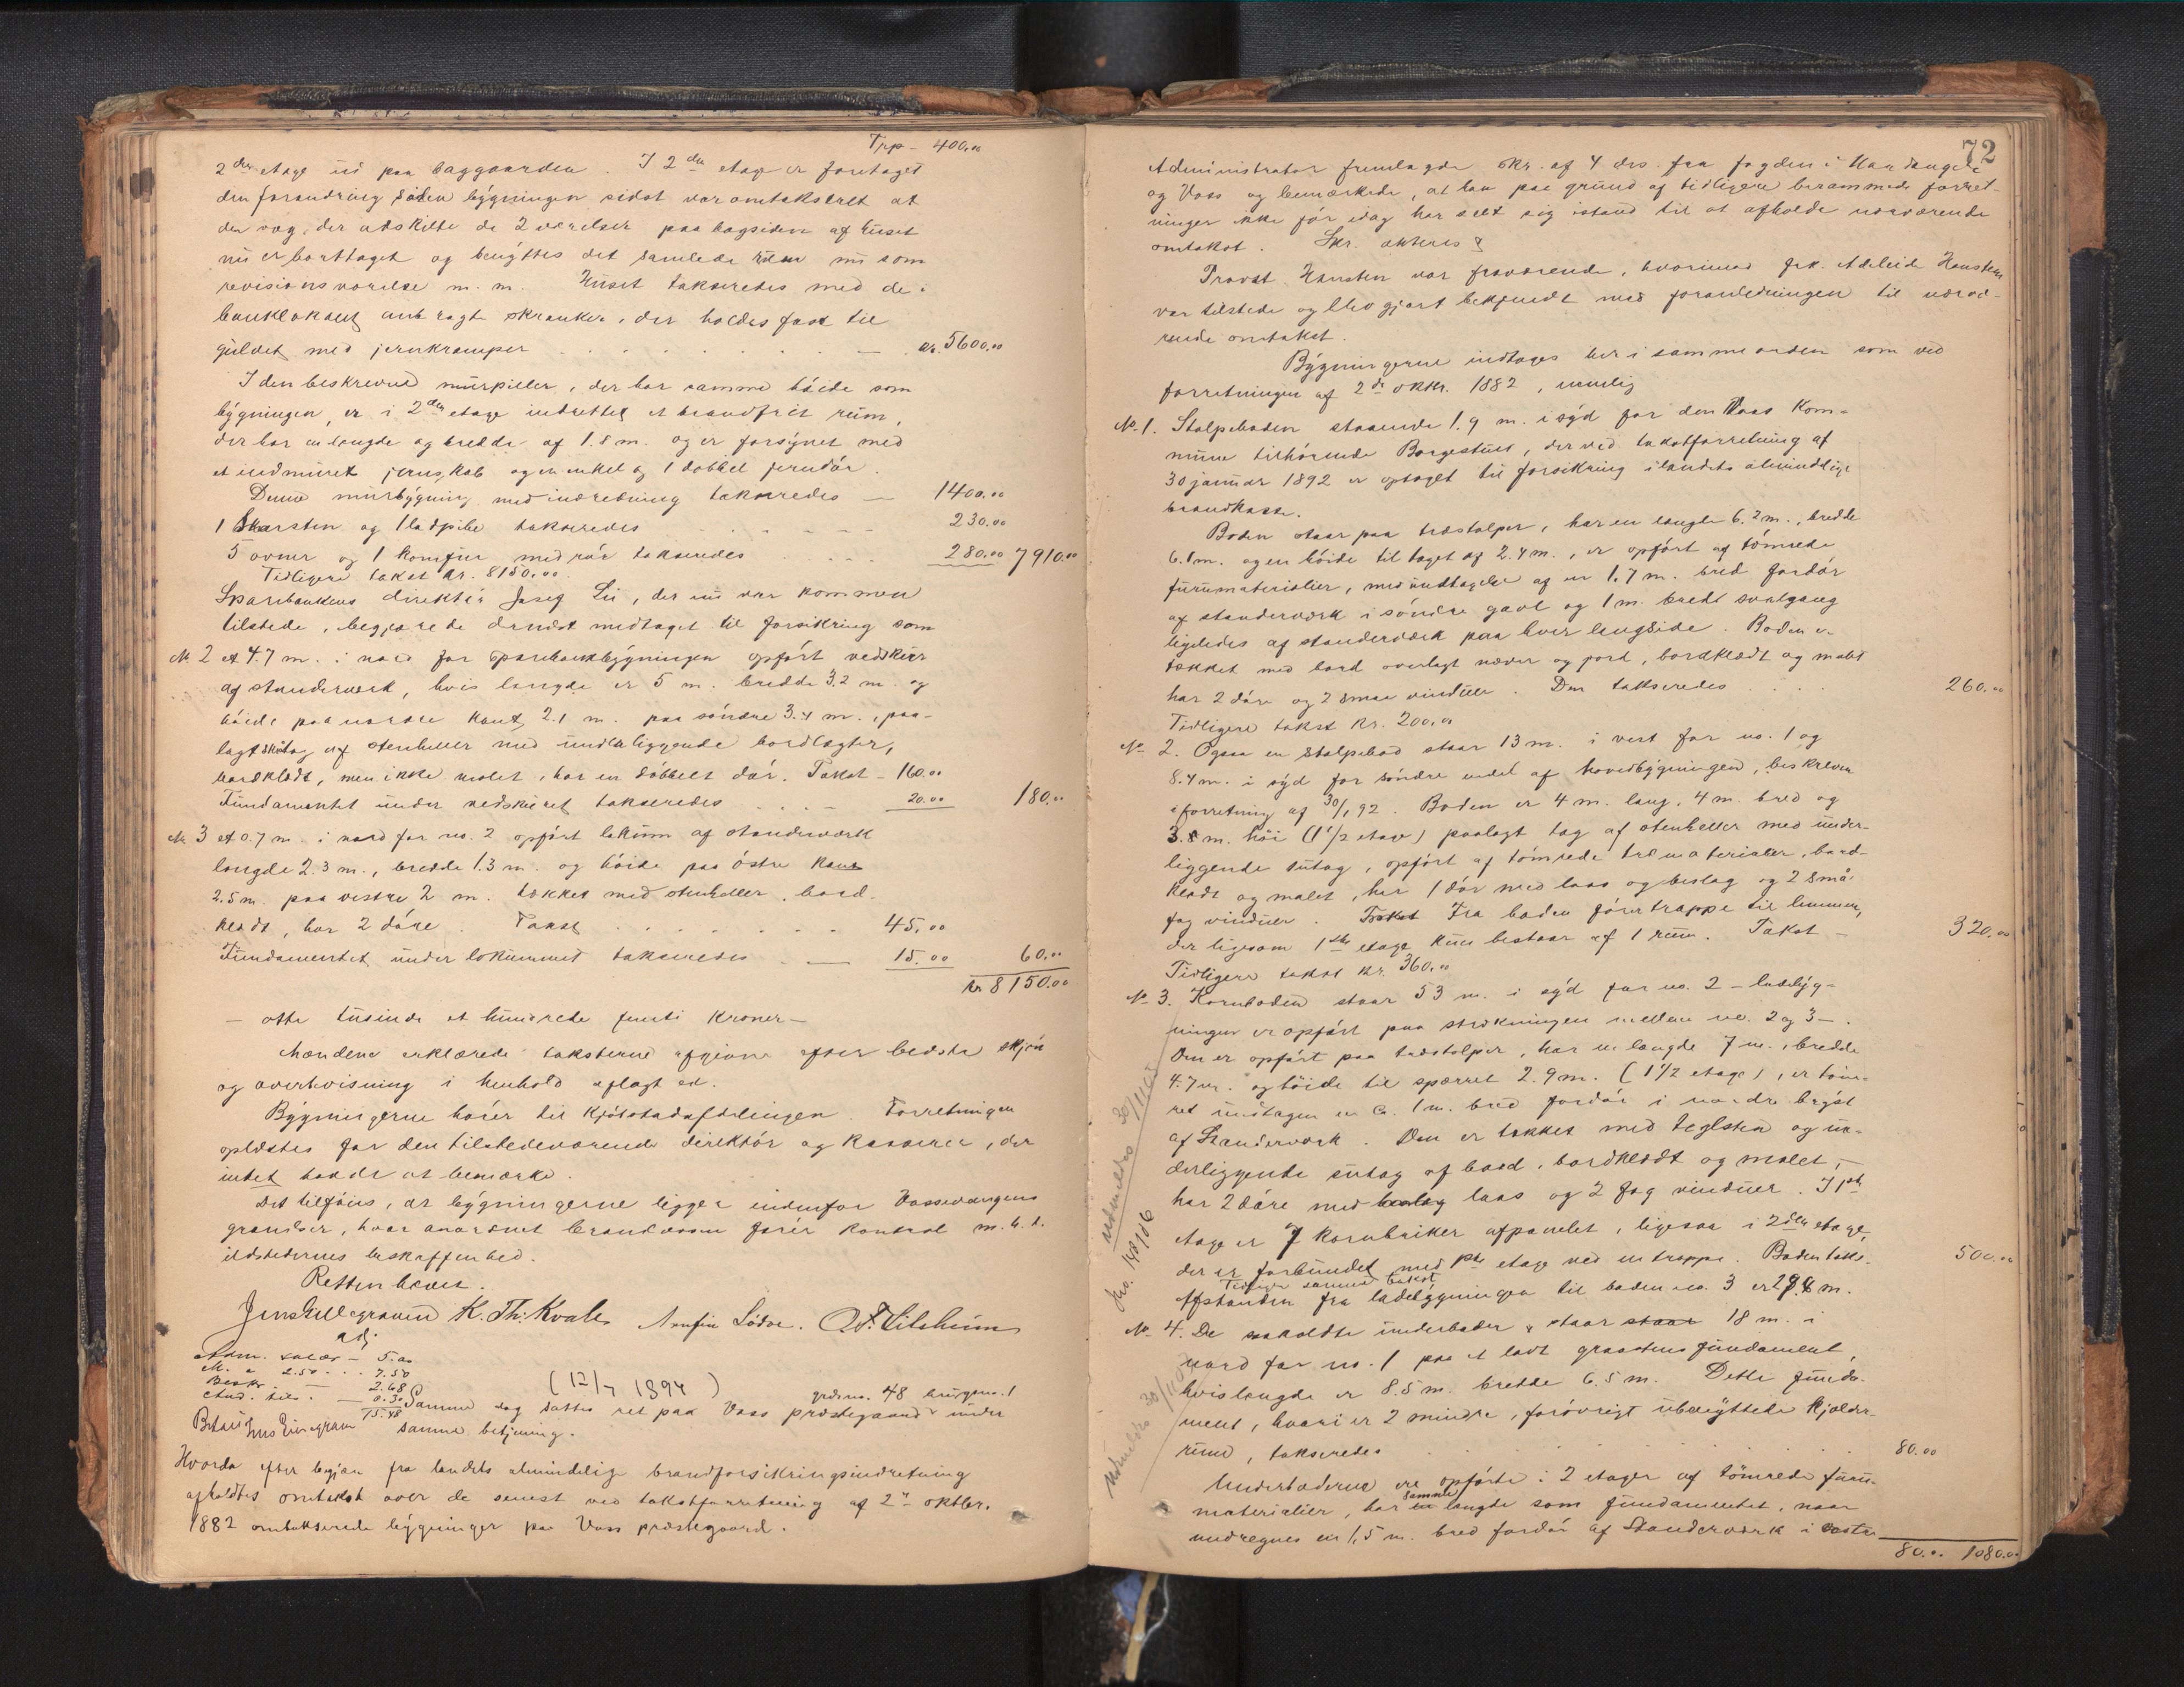 Trp - 400.00
2den etage ud paa baggaarden. I 2den etage er foretaget
den forandring siden bygningen sidst var omtakseret at
den væg, der adskilte de 2 værelser paa bagsiden af huset
nu er borttaget og benyttes det samlede rum nu som
revisionsværelse m. m. Huset takseredes med de i
banklokalet anbragte skranker, der holdes fast til
gulvet med jernkramper . . . . . . . . — kr. 5600.00
I den beskrevne murpiller, der har samme høide som
bygningen, er i 2den etage indrettet et brandfrit rum,
der har en længde og bredde af 1.8 m. og er forsynet med
et indmuret jernskab og en enkel og 1 dobbel jerndør.
Denne murbygning med indredning takseredes — 1400.00
1 skorsten og 1 ladpibe takseredes . . . . — 230.00
5 ovner og 1 komfur med rør takseredes . . . . 280.00 7910.00
Tidligere takst kr. 8150.00.
Sparebankens direktør Joseg Lii, der nu var kommen
tilstede, begjærede dernæst medtaget til forsikring som
No 2 et 4.7 m. i nord for sparebankbygningen opført vedskur
af standerværk, hvis længde er 5 m. bredde 3.2 m. og
høide paa nordre kant 2.1 m. paa søndre 3.4 m., paa-
lagt skutag af stenheller med underliggende bordlægter,
bordklædt, men ikke malet, har en dobbelt dør. Takst - 160.00
Fundamentet under vedskuret takseredes . . . — 20.00 180.00
No 3 et 0.7 m. i nord for no. 2 opført lokum af standerværk
længde 2.3 m., bredde 1.3 m. og høide paa østre kant
2.5 m. paa vestre 2 m. tækket med stenheller, bord-
klædt, har 2 døre. Takst . . . . . . . 45.00
Fundamentet under lokummet takseredes . — 15.00 60.00
kr 8150.00
— otte tusinde et hundrede femti kroner —
Mændene erklærede taksterne afgivne efter bedste skjøn
og overbevisning i henhold aflagt ed.
Bygningerne hører til Kjøbstadafdelingen. Forretningen
oplæstes for den tilstedeværende direktør og kasserer, der
intet havde at bemærke.
Det tilføies, at bygningerne ligger indenfor Vossevangens
grændser, hvor anordnet brandvæsen fører kontrol m. h. t.
ildstedernes beskaffenhed.
Retten hævet.
Jens Lillegraven K. Th. Kvale Arnfin Lødve. O. T. Gilshum
adj.
Adm. salær - 5.00
M. a 2.50 . . . 7.50
Besk. — 2.68
And. til. — 0.30
15.48
Betalt Jens Lillegraven
(12/7 1894) grdsno. 48 brugsno. 1
Samme dag sattes ret paa Voss præstegaard under
samme betjening.
Hvorda efter begjær fra landets almindelige brandforsikringsindretning
afholdtes omtakst over de senest ved takstforretning af 2den oktbr.
1882 omtakserede bygninger paa Voss præstegaard.
72
Administrator fremlagde skr. af 4 ds. fra fogden i Hardanger
og Voss og bemærkede, at han paa grund af tidligere berammede forret-
ninger ikke før idag har seet sig istand til at afholde nærværende
omtakst. Skr. akteres
Provst Hansten var fraværende, hvorimod frk. Adeleide Hansteen
var tilstede og blev gjort bekjendt med foranledningen til nærvæ-
rende omtakst.
Bygningerne indtages her i samme orden som ved
forretningen af 2de oktbr. 1882, nemlig
No. 1. Stolpeboden staaende 1.9 m. i syd for den Voss Kom-
mune tilhørende Borgestue, der ved takstforretning af
30 januar 1892 er optaget til forsikring i landets almindelige
brandkasse.
Boden staar paa træstolper, har en længde 6.2 m., bredde
6.1 m. og en høide til taget af 2.4 m., er opført af tømrede
furumaterialier, med undtagelse af en 1.7 m. bred fordør
af standerværk i søndre gavl og 1 m. bredt svalgang
ligeledes af standerværk paa hver langside. Boden er
tækket med bord overlagt næver og jord, bordklædt og malet
har 2 døre og 2 smaa vinduer. Den takseredes . . . . 260.00
Tidligere takst kr. 200.00
No. 2. Ogsaa en stolpebod staar 13 m. i vest for no. 1 og
8.4 m. i syd for søndre endel af hovedbygningen, beskreven
i forretning af 30/1 92. Boden er 4 m. lang, 4 m. bred og
3.8 m. høi (1 1/2 etage) paalagt tag af stenheller med under-
liggende sutag, opført af tømrede træmaterialier, bord-
klædt og malet, har 1 dør med laas og beslag og 2 små
fag vinduer. Takst Fra boden fører trappe til lemmen,
der ligesom 1ste etage kun bestaar af 1 rum. Takst — 320.00
Tidligere takst kr. 360.00
No. 3. Kornboden staar 53 m. i syd for no. 2 — ladebyg-
ningen er opført paa strækningen mellem no. 2 og 3 —.
Den er opført paa træstolper, har en længde 7 m., bredde
4.7 m. og høide til sperret 2.9 m. (1 1/2 etage), er tøm-
ret undtagen en c. 1 m. bred fordør i nordre bryst
af standerværk. Den er tækket med teglsten og un-
derliggende sutag af bord, bordklædt og malet, —
har 2 døre med beslag laas og 2 fag vinduer. I 1ste
etage er 7 kornbinker afpanelet, ligesaa i 2den etage,
der er forbundet med 1ste etage ved en trappe. Boden taks. 500.00
Tidligere samme takst
Afstanden fra ladebygningen til boden no. 3 er 29.6 m.
No. 4. De saakaldte underboder, staar staar 18 m. i
nord for no. 1 paa et lavt graastens fundament,
hvis længde er 8.5 m. bredde 6.5 m. Dette funda-
ment, hvori er 2 mindre, forøvrigt ubenyttede kjælder-
rum, takseredes . . . . . . . . . 80.00
Underboderne ere opførte i 2 etager af tømrede furu-
materialier, har en samme længde som fundamentet, naar
undregnes en 1,5 m. bred fordør af standerværk i østre
80.00 1080.00
No. 148/06 udmeldes 30/1105
Udmeldes 30/1105